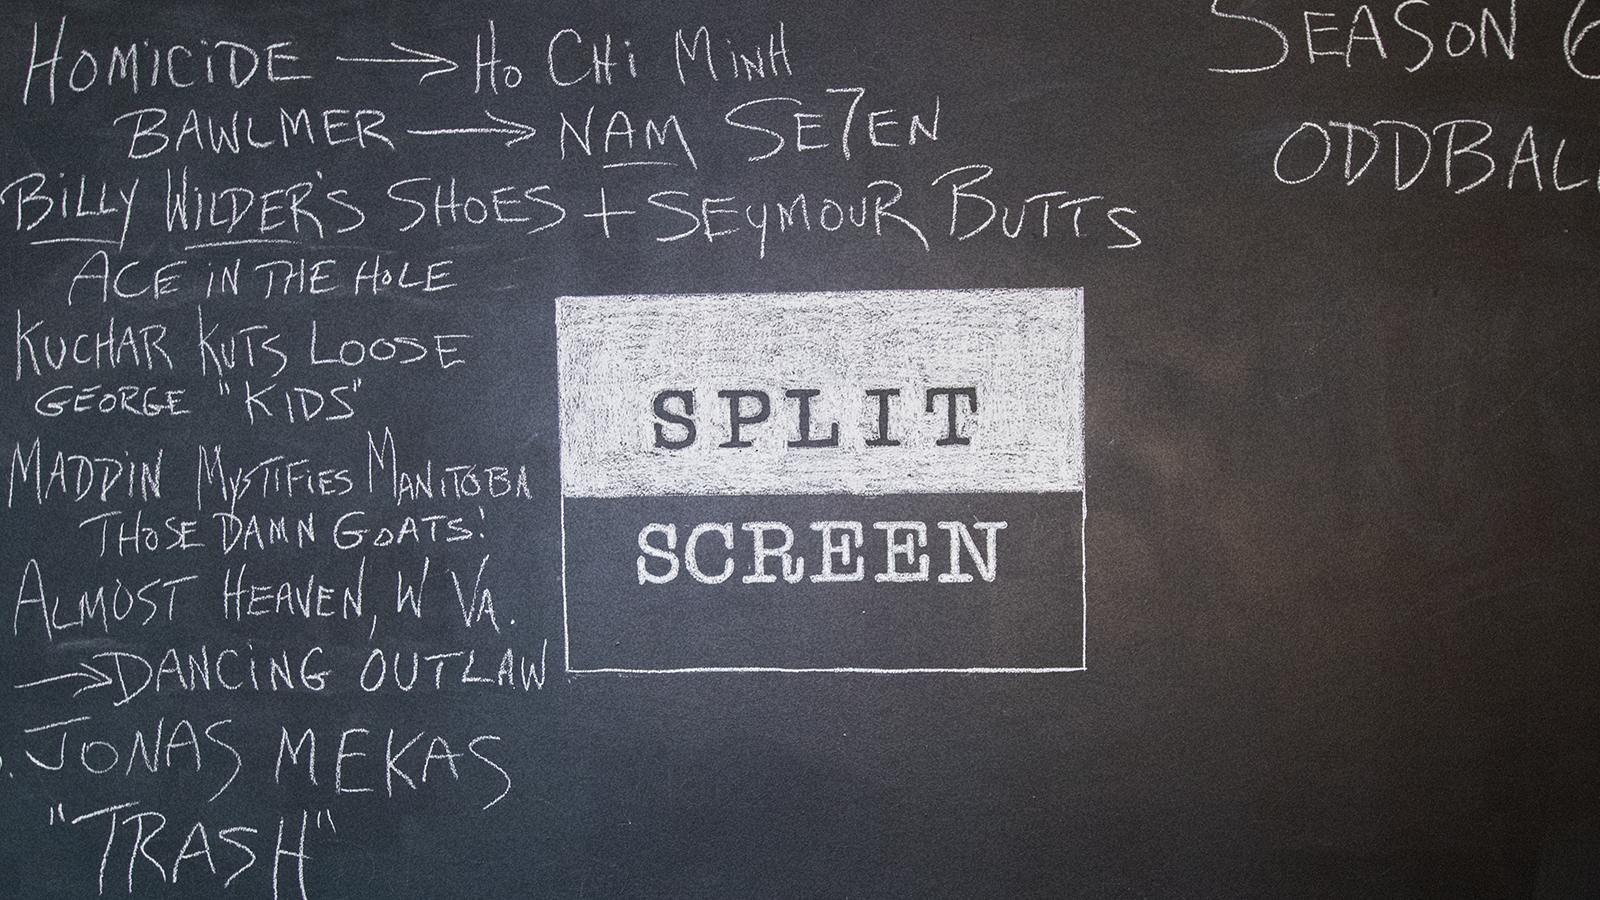 HOMICIDE → HO CHI MINH
BAWLMER → NAM SE7EN
BILLY WILDER'S SHOES + SEYMOUR BUTTS
ACE IN THE HOLE
KUCHAR KUTS LOOSE
GEORGE "KIDS"
MADDIN MYSTIFIES MANITOBA
THOSE DAMN GOATS!
ALMOST HEAVEN, W VA.
→ DANCING OUTLAW
JONAS MEKAS
"TRASH"
SPLIT
SCREEN
SEASON 6
ODDBAL